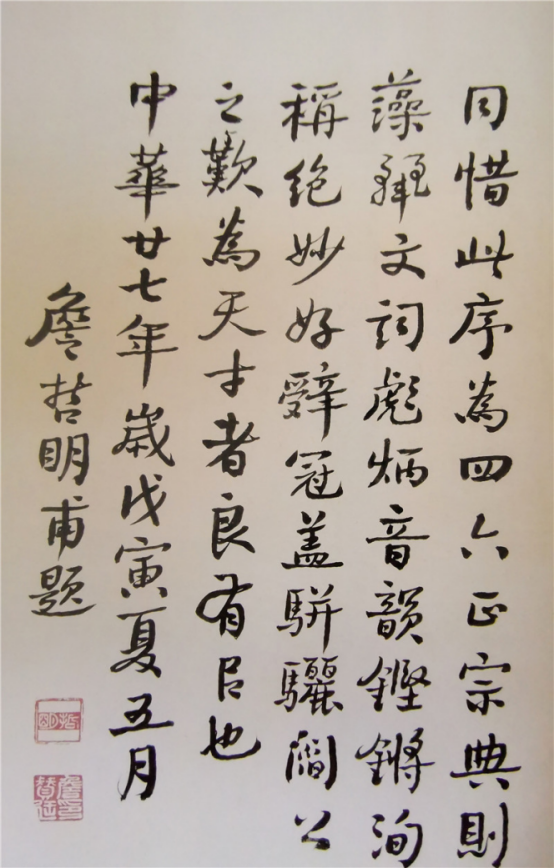 同惜此序為四六正宗典則
藻文詞彪炳音韻鏗鏘洵
稱絶妙好辭冠蓋駢驪閻公
之歎為天才者良有㠯也
中華廿七年歲戊寅夏五月
詹哲明甫題
哲明
詹印贊廷